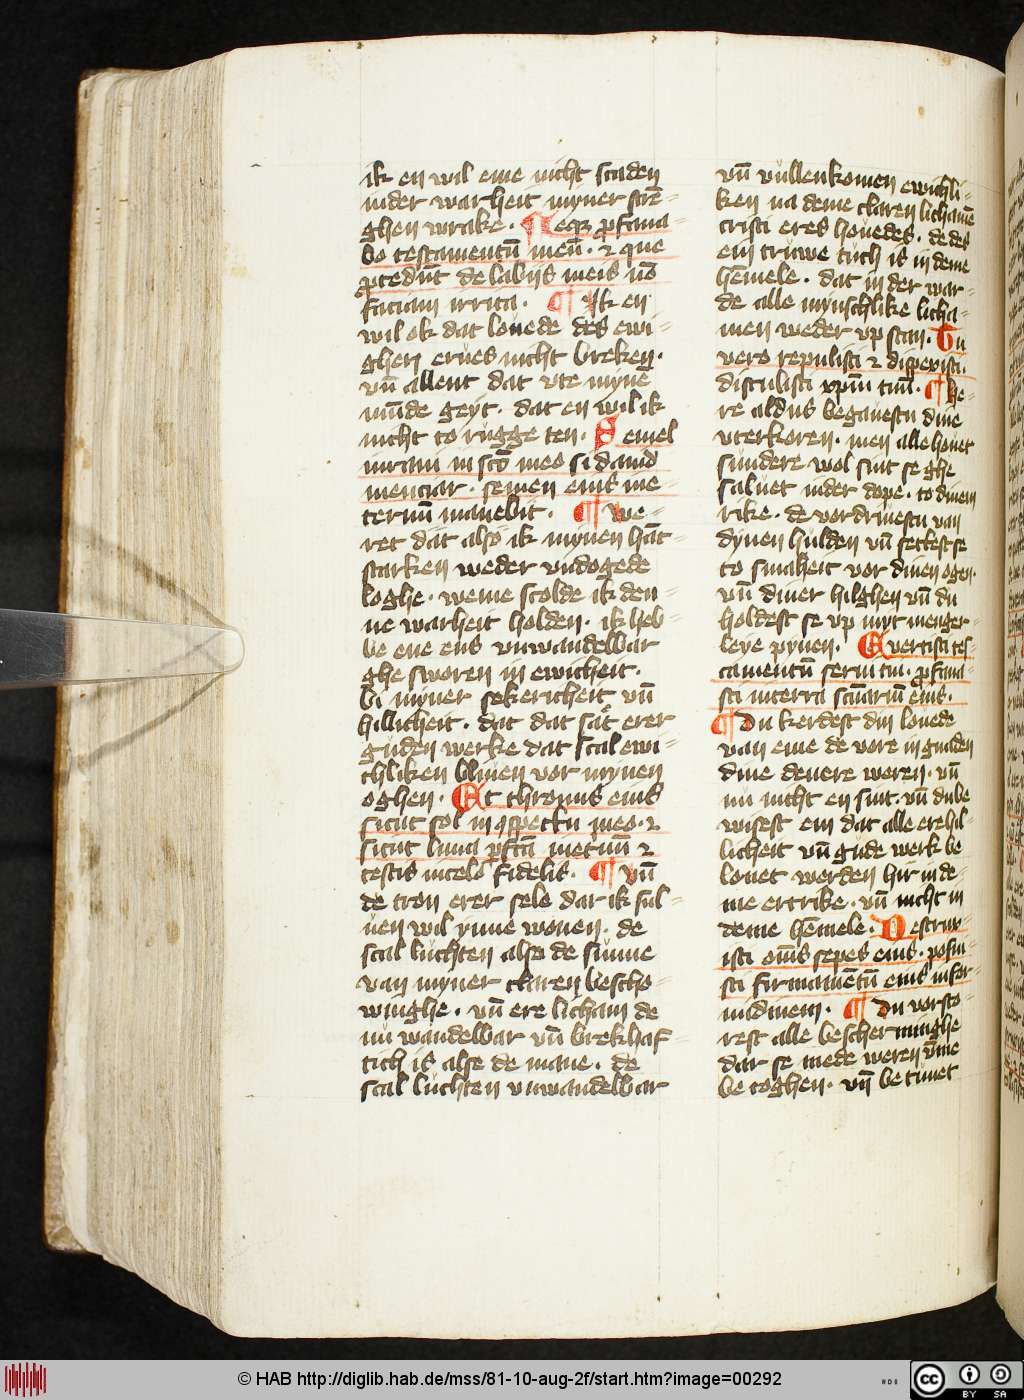 ik en wil eme nicht scaden
inder warheit myner stre᷑=
ghen wrake · ¶ Neqꝫ ꝓfana=
bo testamentū meū · ⁊ que
ꝓcedūt de labijs meis nō
faciam irrita · ¶ Ik en
wil ok dat louede des ewi=
ghen erues nicht breken ·
vn̄ allent dat vte myne
mūde geyt · dat en wil ik
nicht to rugge ten · Semel
iuraui in scō meo si dauid
menciar · semen eius ine=
ternū manebit · ¶ we=
ret dat also ik mynen hāt=
starken weder vndogede
loghe · weme scolde ik den=
ne warheit holden · ik heb=
be ene ens vnwandelbar
ghe sworen in ewicheit ·
bi myner sekericheit vn̄
hillicheit · dat dat sāt erer
guden werke dat scal ewi=
chliken bliuen vor mynen
oghen · Et thronus eius
sicut sol in ꝯspectu meo · ⁊
sicut luna ꝑfcā ineternū ⁊
testis incelo fidelis · ¶ vn̄
de tron erer sele dar ik sul=
uen wil ynne wonen · de
scal luchten also de sunne
van myner claren bescho=
winghe · vn̄ ere licham de
nu wandelbar vn̄ brekhaf=
tich is alse de mane · de
scal luchten vnwandelbar
vn̄ vullenkomen ewichli=
ken na deme claren lichamē
cristi eres houedes · de des
ein truwe tuch is in deme
hēmele · dat in der war=
de alle mynschlike licha=
men weder vp stan · Tu
vero repulisti ⁊ dispexisti ·
distulisti xpm̄ tuū · ¶ he=
re aldus begauestu dine
vterkoren · men alle houet
sundere wol sint se ghe
saluet inder dope · to dinem
rike · de vordriuestu van
dynen hulden vn̄ settest se
to smaheit vor dinen ogen ·
vn̄ diner hilghen vn̄ du
holdest se vp myt menger=
leye pynen · Euertisti tes=
tamentū serui tui · ꝓfana=
sti interra scūariū eius ·
¶ Du kerdest din louede
van eme de vore in gnaden
dine denere weren · vn̄
nu nicht en sint · vn̄ du be
wisest em dat alle ere hil=
licheit vn̄ gude werk be
louet werden hir in de=
me ertrike · vn̄ nicht in
deme hēmele · Destrux=
isti om̄s sepes eius · posui=
sti firmamētū eius infor=
midinem · ¶ Du vorsto=
rest alle bescherminghe
dar se mede weren vm̄e
be toghen · vn̄ be tunet
© HAB http://diglib.hab.de/mss/81-10-aug-2f/start.htm?image=00292
HAB
cc BY SA